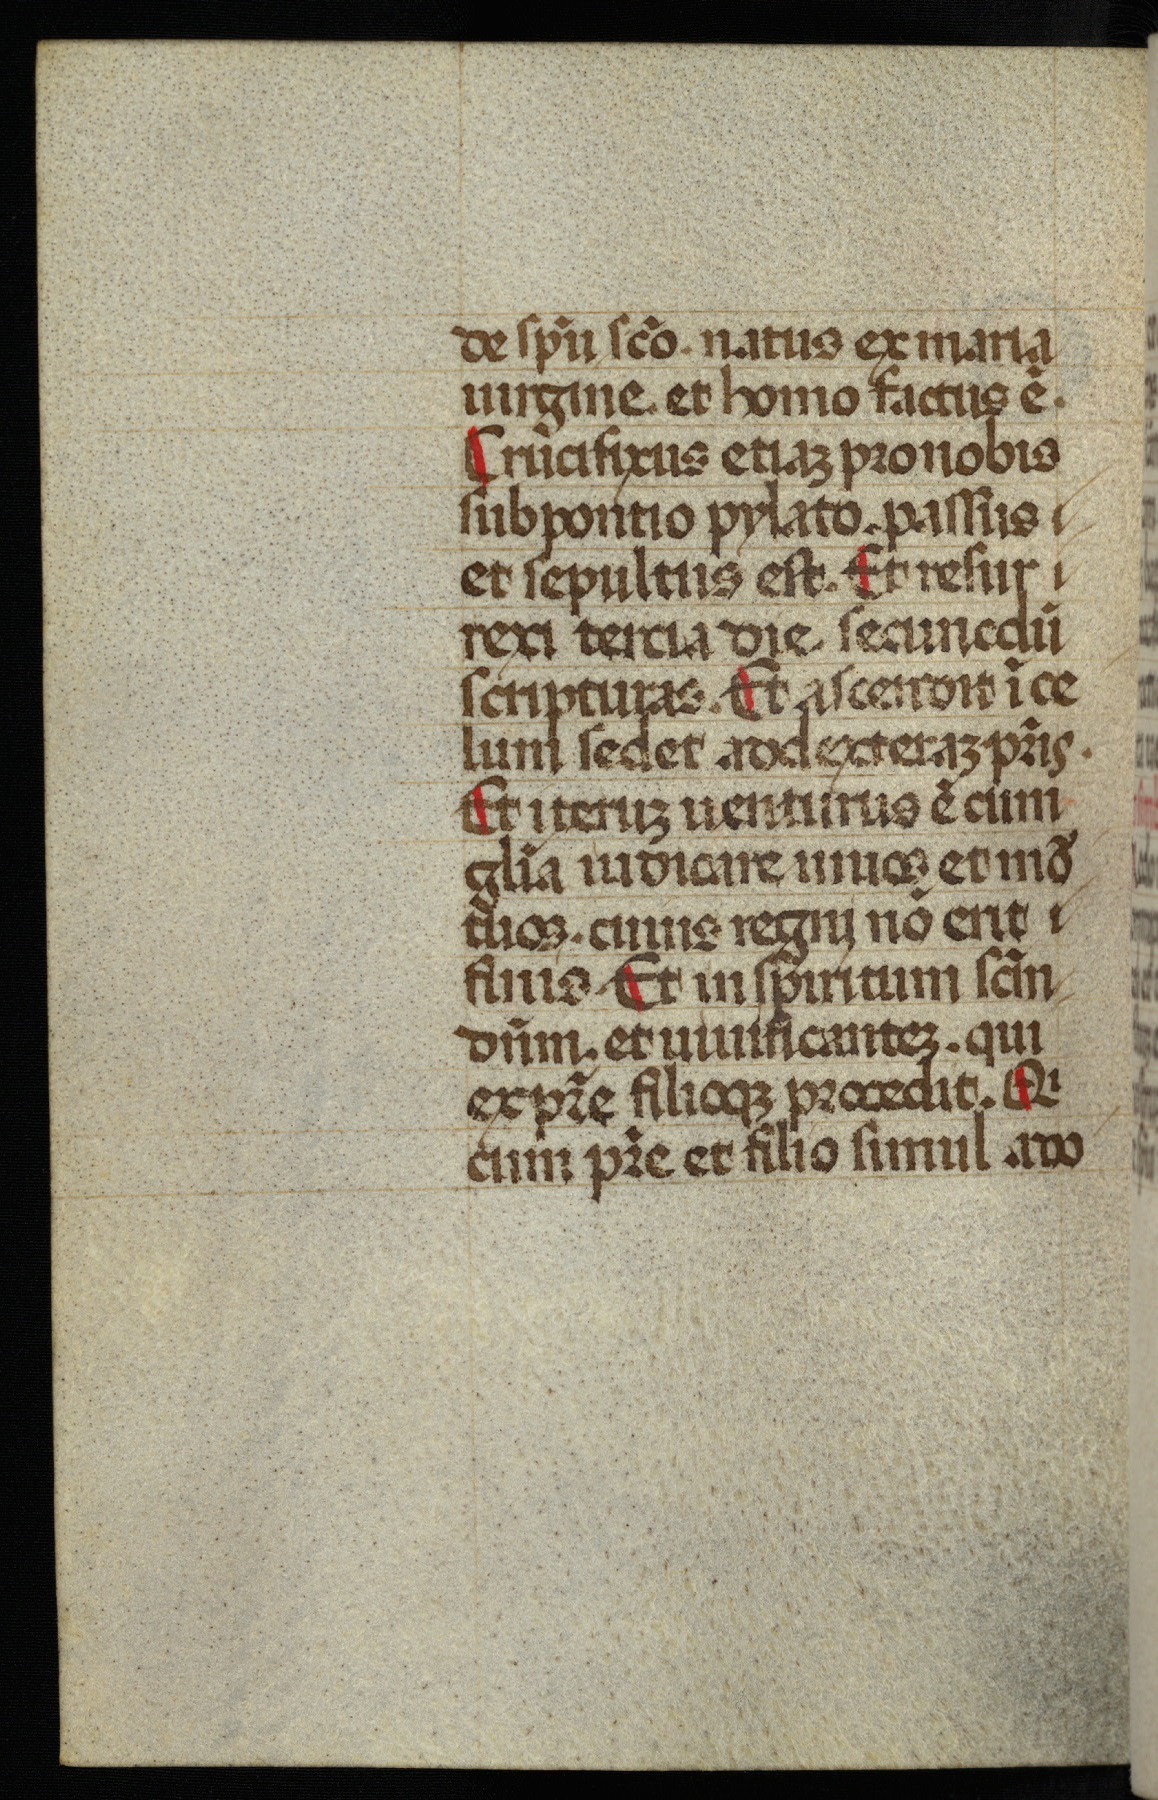 de sp̄u sc̄o. natus ex maria
uirgine. et homo factus ē.
Crucifixus etiaꝫ pro nobis
sub pontio pylato. passus
et sepultus est. Et resur
rexi tercia die. secuncdū
scripturas. Et ascendit ī ce
lum sedet ad dexteraꝫ pr̄is.
Et iteruꝫ uenturus ē cum
glīa iudicare uiuos et mō
tuos. cuius regnj nō erit
finis. Et in spiritum scm̄
dūm. et uiuificanteꝫ. qui
ex pr̄e filioqꝫ procedit. Qi
cum pr̄e et filio simul ado